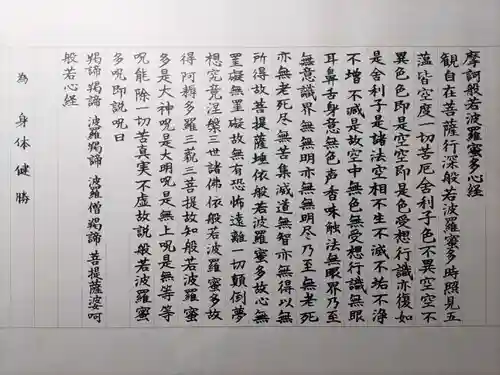 摩訶般若波羅蜜多心経
観自在菩薩行深般若波羅蜜多時照見五
蘊皆空度一切苦厄舎利子色不異空空不
異色色即是空空即是色受想行識亦復如
是舎利子是諸法空相不生不滅不垢不浄
不増不減是故空中無色無受想行識無眼
耳鼻舌身意無色声香味触法無眼界乃至
無意識界無無明亦無無明尽乃至無老死
亦無老死尽無苦集滅道無智亦無得以無
所得故菩提薩埵依般若波羅蜜多故心無
罣礙無罣礙故無有恐怖遠離一切顛倒夢
想究竟涅槃三世諸佛依般若波羅蜜多故
得阿耨多羅三藐三菩提故知般若波羅蜜
多是大神呪是大明呪是無上呪是無等等
呪能除一切苦真実不虚故説般若波羅蜜
多呪即説呪曰
羯諦 羯諦 波羅羯諦 波羅僧羯諦 菩提薩婆呵
般若心経
為 身体健勝